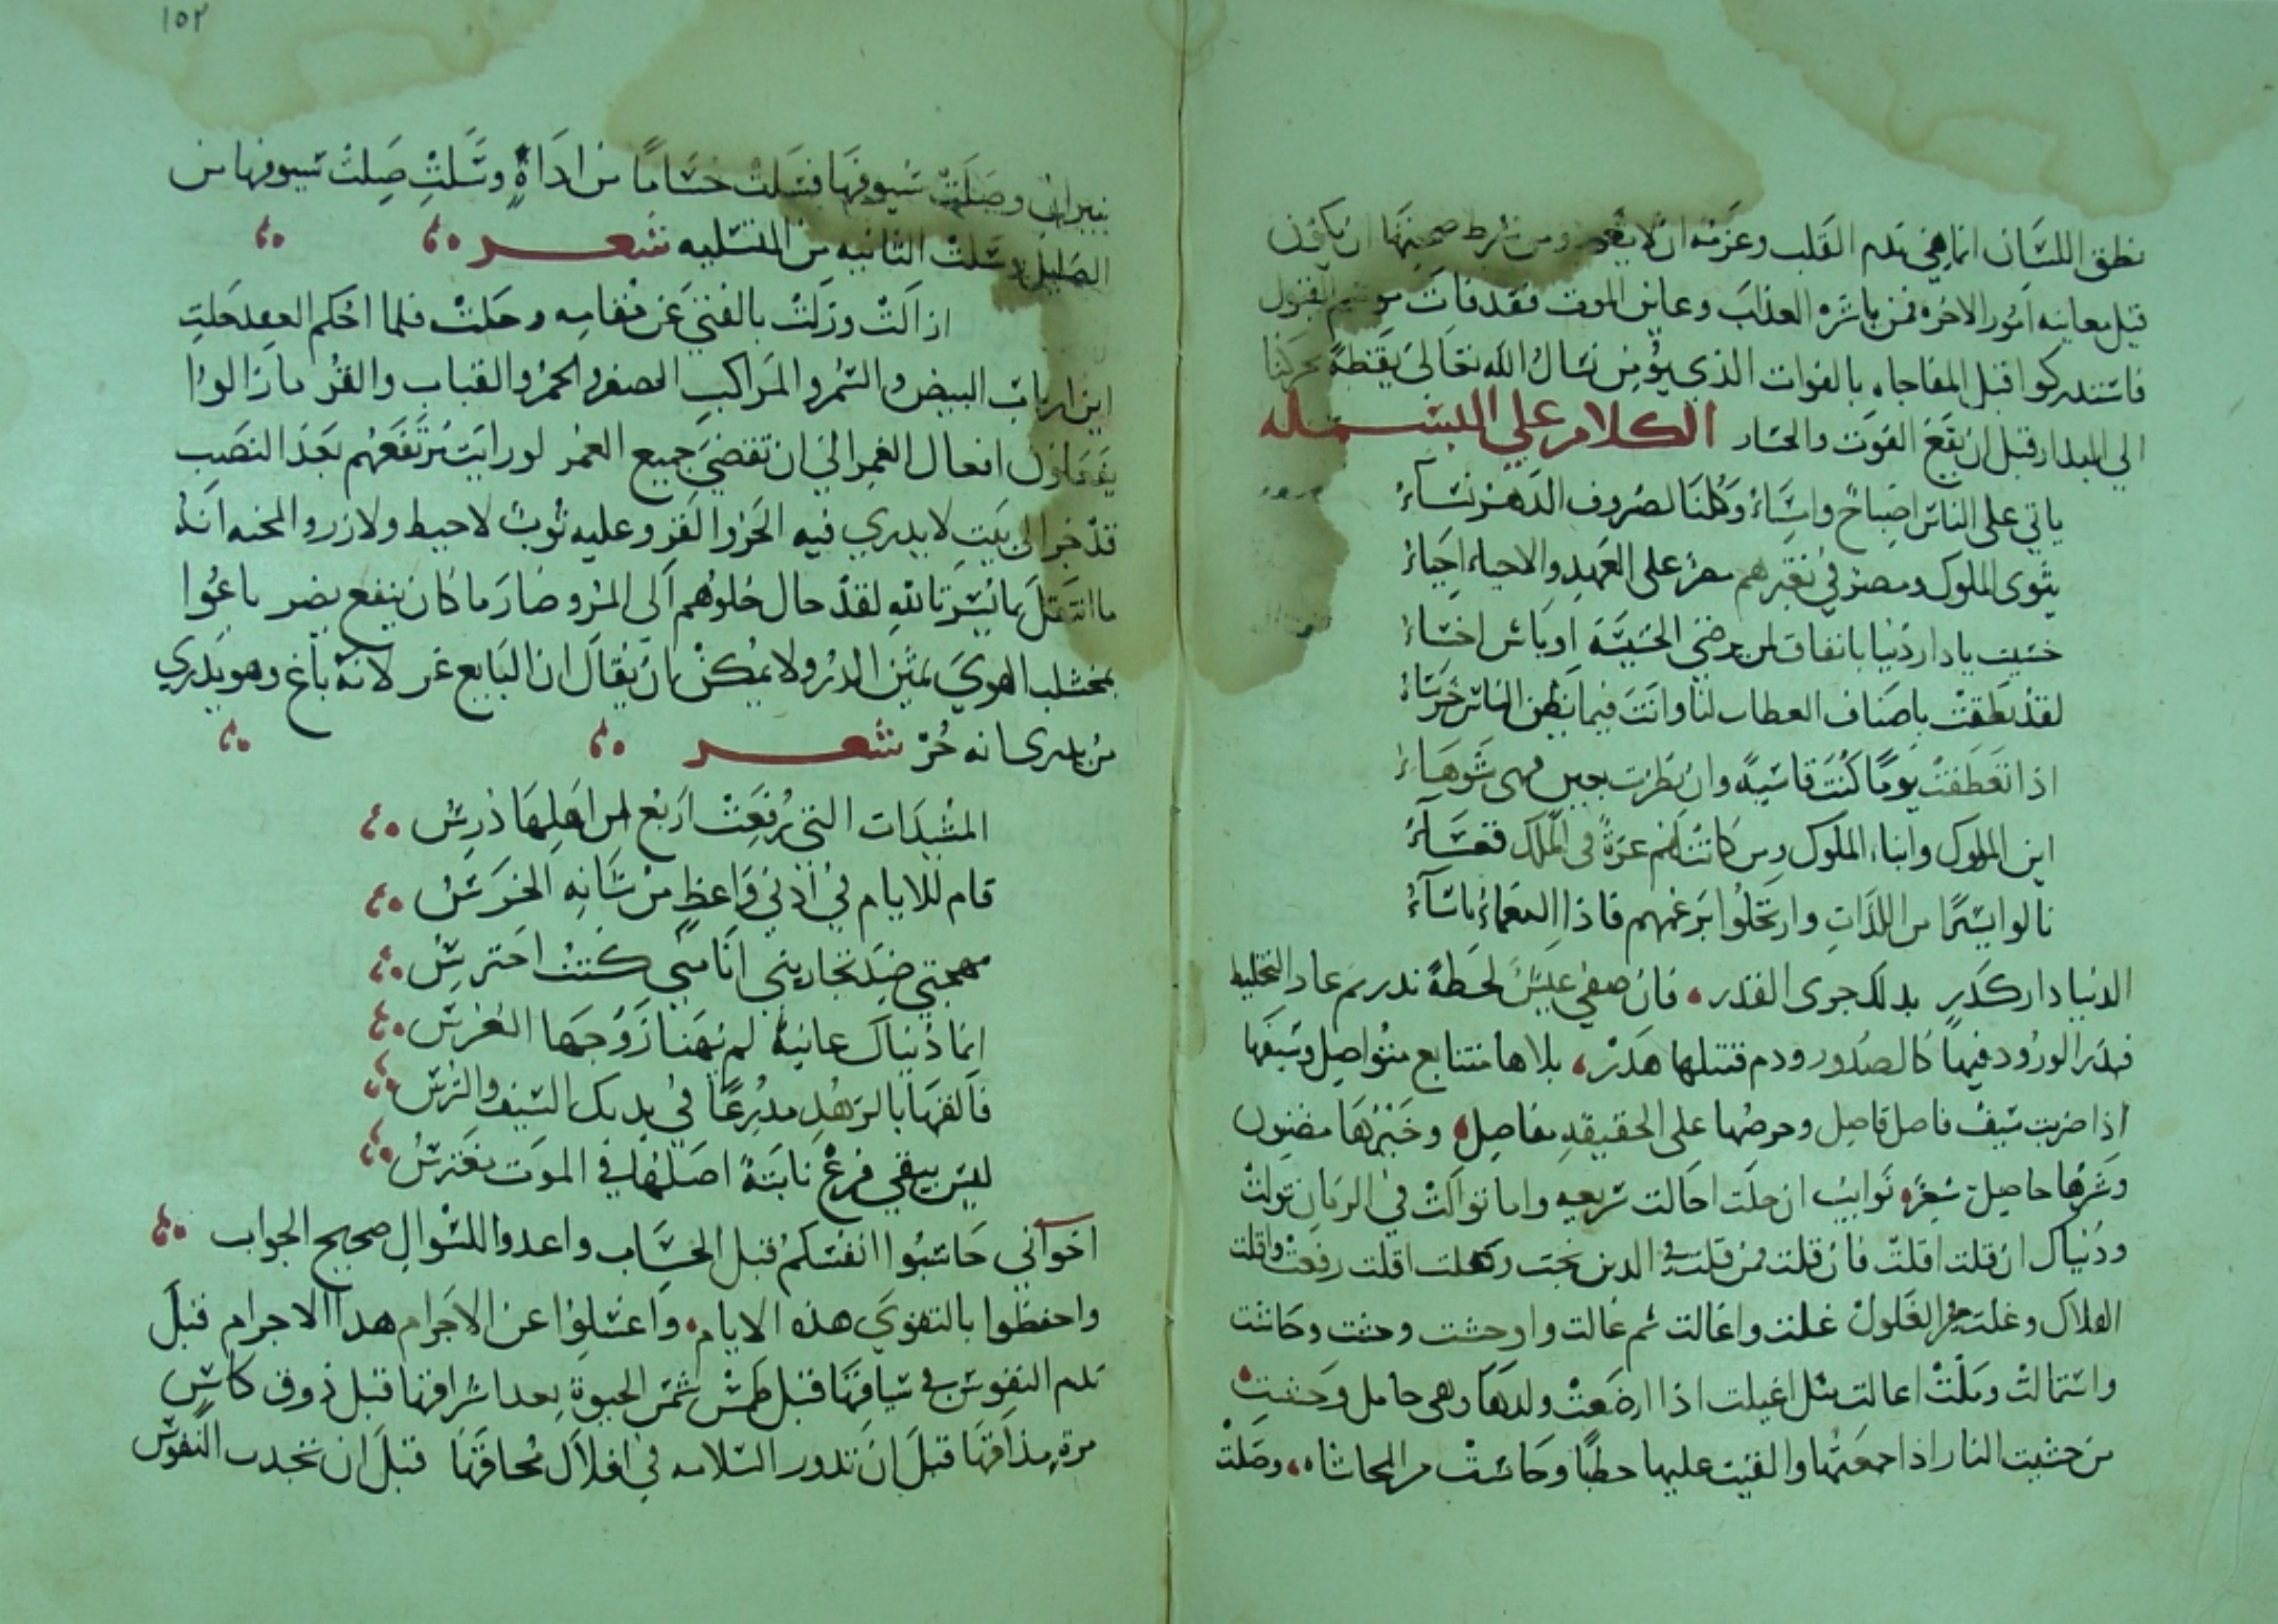 نطق اللسان انما هي ندم القلب وعزمه ان لا يعود ومن شرط صحتها ان تكون
قبل معاينه امور الاخره فمن باشره العذاب وعاين الموت فقد فات موسم القبول
فاستدركوا قبل المفاجاه بالفوات الذي يؤمن نسال الله تعالى يقظة تحركنا
الى البدار قبل ان يقع الفوت والخسار الكلام على البسمله
ياتي على الناس اصباح وامساء وكلنا لصروف الدهر نساء
يثوى الملوك ومصر في تغيرهم مصر على العهد والاحياء احياء
خسيت يا دار دنيا بانفاق لمن يرضى الخسيسة اوباش اخساء
لقد نطقت باصناف العطاب لنا وانت فيما يظن الناس خرساء
اذا تعطفت يوما كنت قاسية وان نظرت بعين فهى شوهاء
اين الملوك وابناء الملوك ومن كانت لهم عزة في الملك قعساء
نالوا يسيرا من اللذات وارتحلوا برغمهم فاذا النعماء باساء
الدنيا دار كدر بذلك جرى القدر فان صفى عيش لحظة ندر ثم عاد التخليط
فبدر الورود فيها كالصدور ودم قتيلها هدر بلاها متتابع متواصل وسيفها
اذا ضربت سيف فاصل قاصل وحرضها على الحقيقه مفاصل وخيرها مضنون
وشرها حاصل شعر نوايب ان حلت احالت سريعه واما توالت في الزمان تولت
ودنياك ان قلت اقلت فان قلت فمن قلت في الدين نجت وكهلت اقلت رفعت واقلت
الفلاك وغلت من الغلول غلت واغالت ثم غالت واوحشت وحشت وحانت
واستمالت وملت اعالت مثل اغيلت اذا ارضعت ولدها وهى حامل وحشت
من حشيت النار اذا جمعتها والقيت عليها حطبا وحاشت من المحاشاه وصلت
١٥٢
بنيران وصلت سيوفها فسلت حساما من اداة وسلت صلت سيوفها من
الصليل وسلت الثانيه من التسليه شعر
ازالت وزلت بالفتى عن مقامه وحلت فلما احكم العقد حلت
اين ارباب البيض والسمر والمراكب الصفر والحمر والقباب والقمر ما زالوا
يفعلون افعال الغمر الى ان تقضى جميع العمر لو رايت مرتفعهم بعد النصب
قد خر الى بيت لا يدري فيه الخز والقز وعليه ثوب لا خيط ولا زر والمحنه انه
ما انتقل بما يسر تالله لقد حال حلوهم الى المر وصار ما كان ينفع يضر باعوا
بمخشلب الهوى ثمين الدر ولا يمكن بان يقال ان البايع غر لانه باع وهو يدري
من يدرى انه حر شعر
المشيدات التي رفعت اربع من اهلها درس
قام للايام في اذني واعظ من شانه الخرس
مهجتي ضد تحاربني انا مني كنت احترس
انما دنياك غانية لم يهنا زوجها العرس
فالقها بالزهد مدرعا في يديك السيف والترس
ليس يبقى فرع نابتة اصلها في الموت يغترس
اخواني حاسبوا انفسكم قبل الحساب واعدوا للسوال صحيح الجواب
واحفظوا بالتقوى هذه الايام واغسلوا عن الاجرام هذا الاجرام قبل
ندم النفوس في سياقها قبل طمس شمس الحيوة بعد اشراقها قبل ذوق كاس
مرة مذاقها قبل ان تدور السلامه في افلاك محاقها قبل ان تجذب النفوس